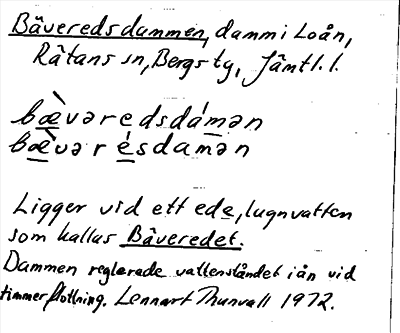 Bäveredsdammen, damm i Loån,
Rätans sn, Bergs tg, Jämtl. l.
bæ̀vəredsdámən
bæ̀vərésdamən
Ligger vid ett ede, lugnvatten
som kallas Bäveredet.
Dammen reglerade vattenståndet i ån vid
timmerflottning. Lennart Thunvall 1972.